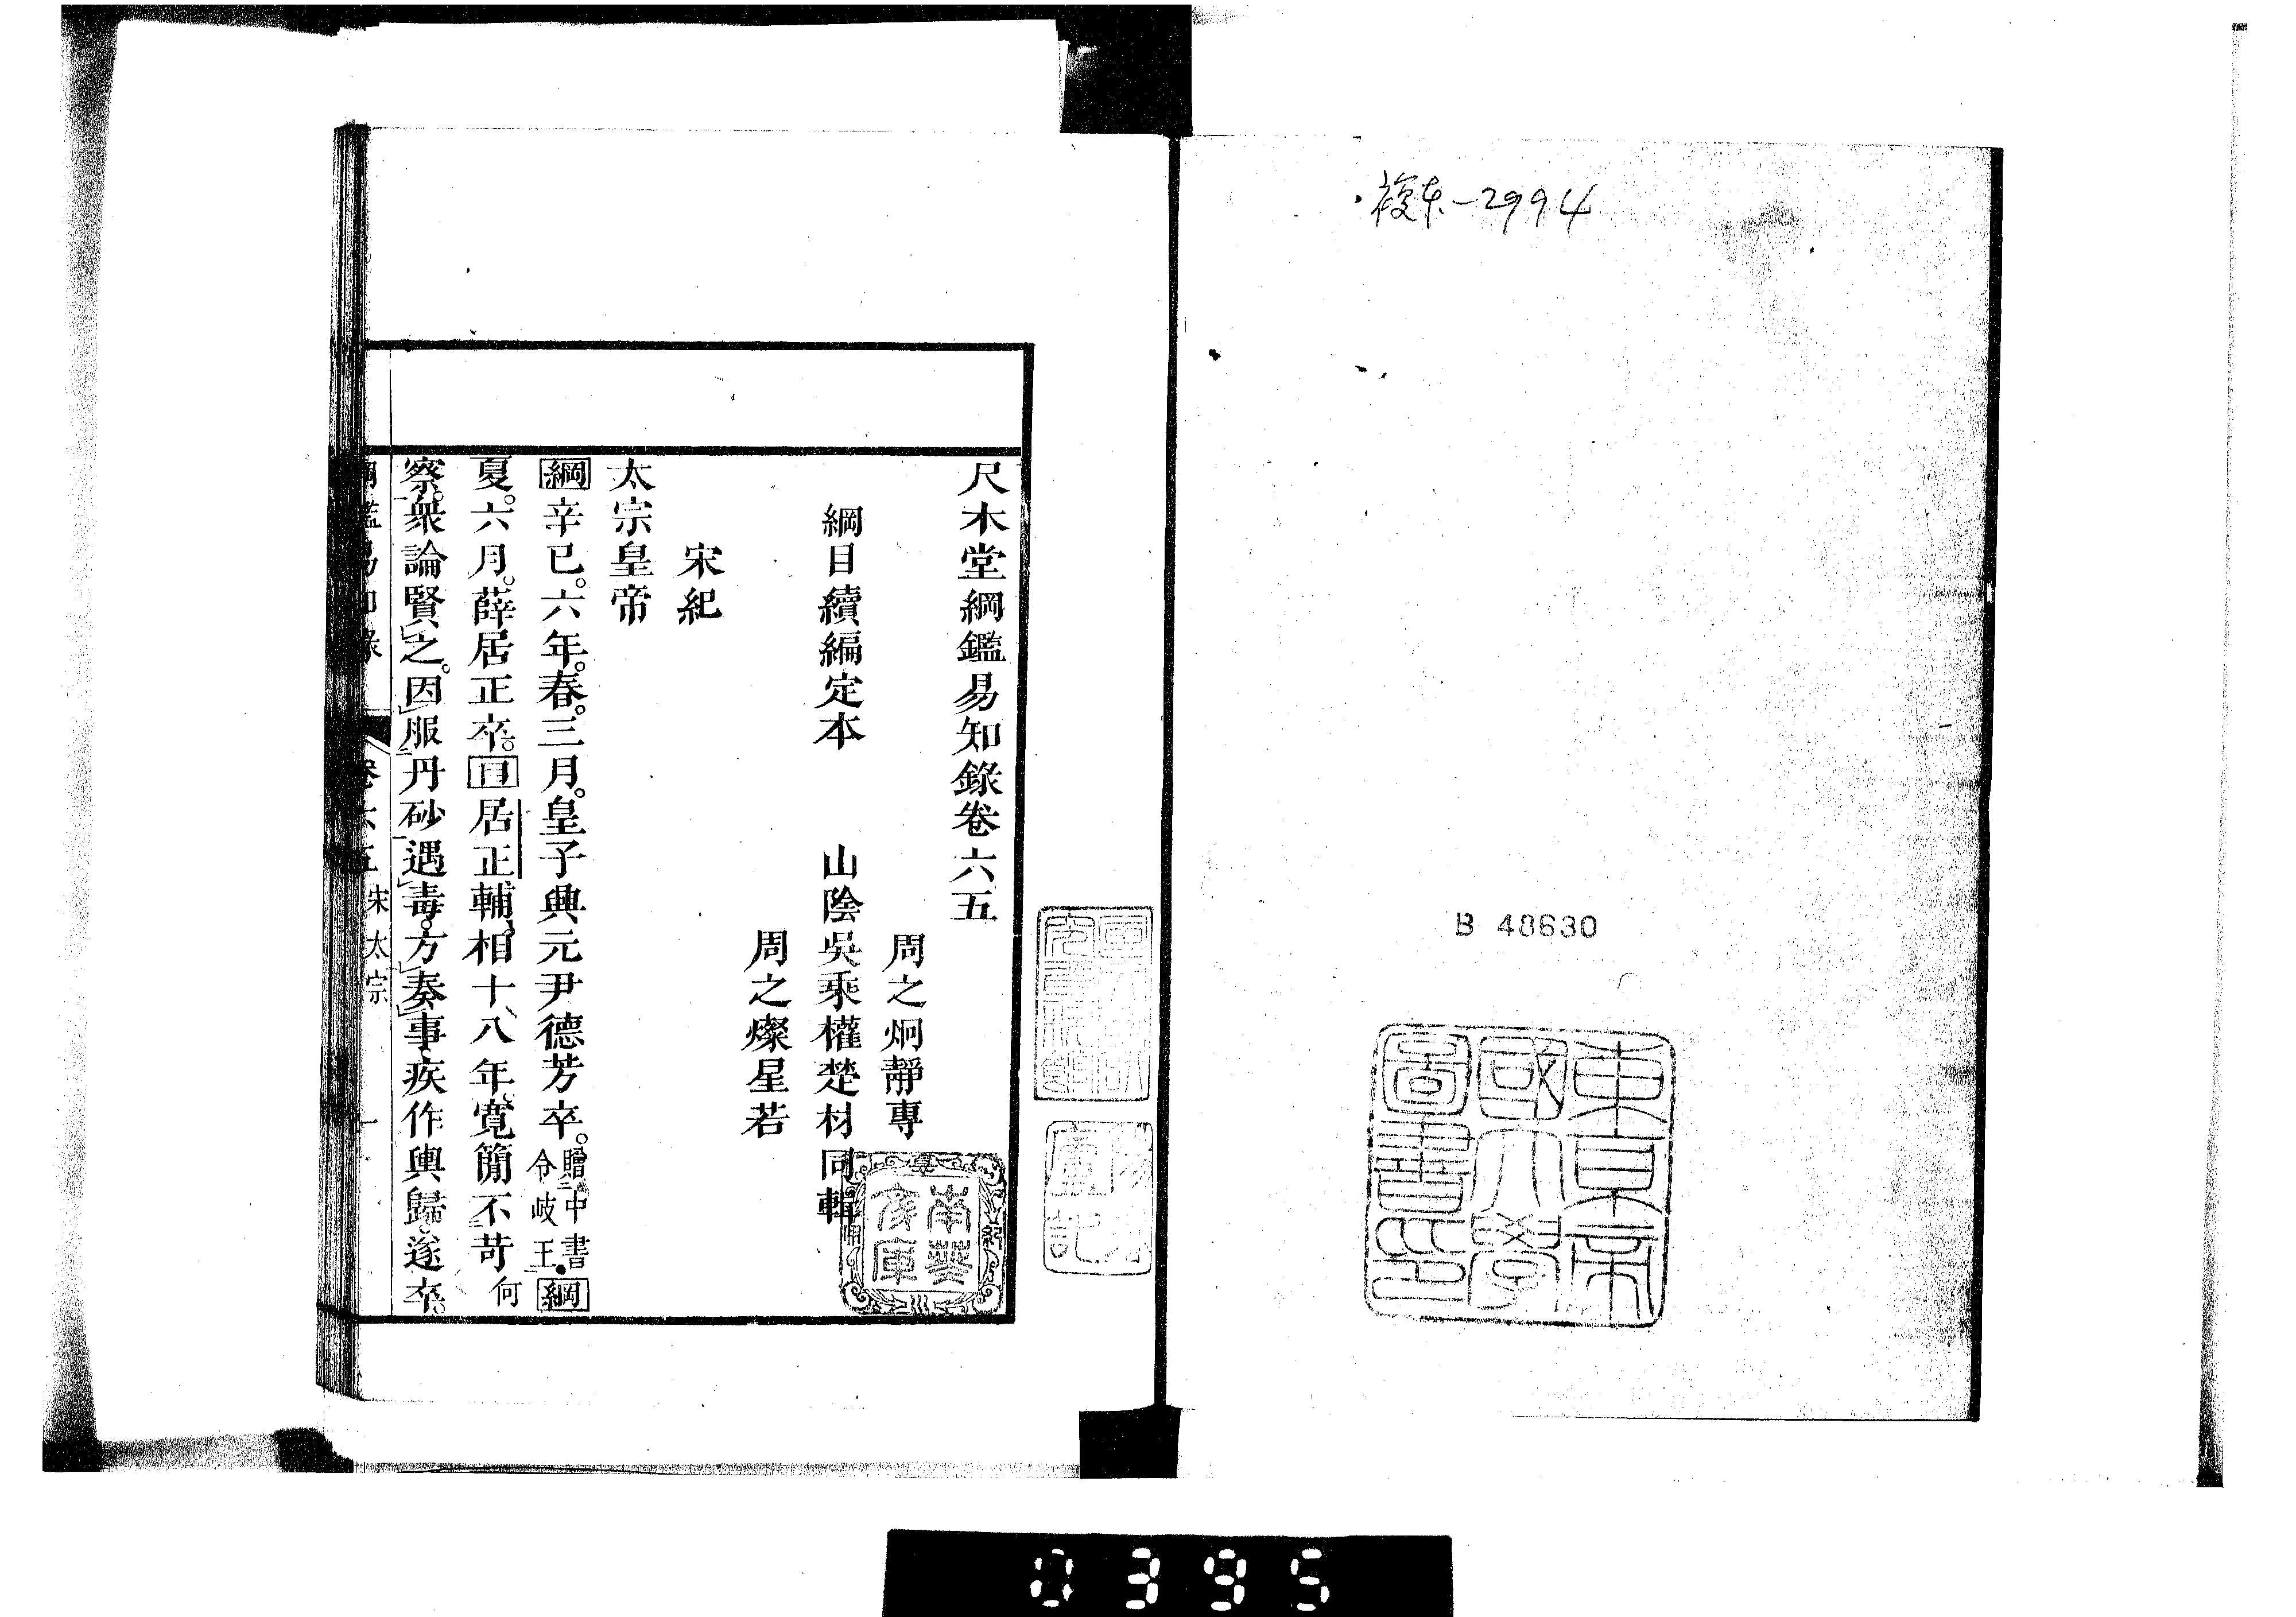 複东-2994
B 48630
東京帝
國大學
圖書印
尺木堂綱鑑易知錄卷六五
周之炯靜專
綱目續編定本 山陰吳乘權楚材同輯
周之燦星若
宋紀
太宗皇帝
綱辛巳。六年。春。三月。皇子興元尹德芳卒。贈中書令岐王。綱
夏。六月。薛居正卒。目居正輔相十八年。寬簡不苛何
察。衆論賢之。因服丹砂遇毒。方奏事疾作輿歸。遂卒。
卷六五 宋太宗 一
0395